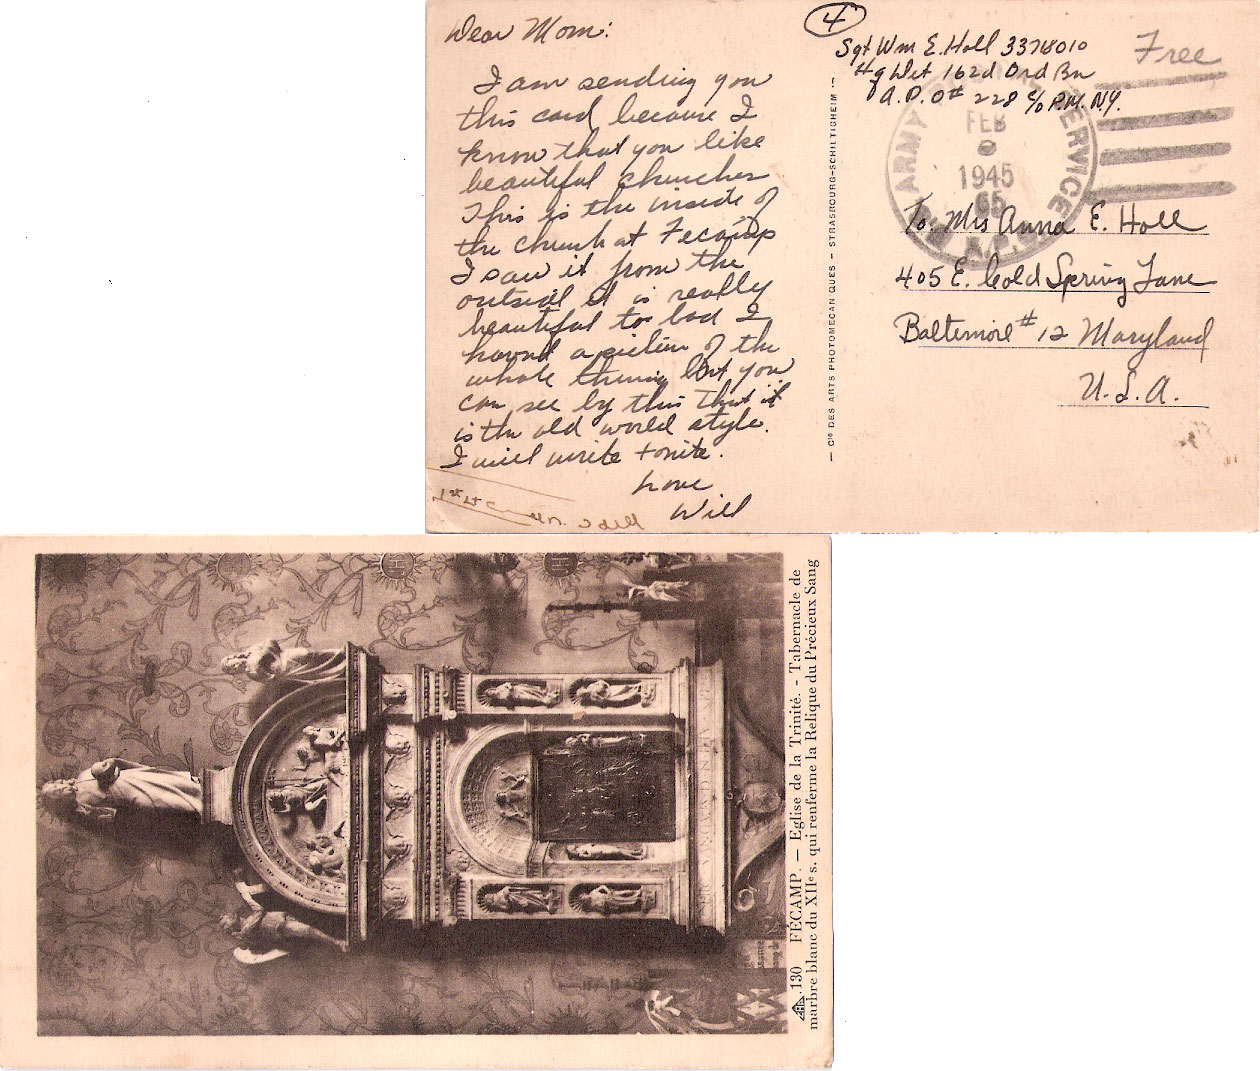 Dear Mom:
I am sending you
this card because I
know that you like
beautiful churches
This is the inside of
the church at Fecamp
I saw it from the
outside it is really
beautiful to bad I
havnt a picture of the
whole thing but you
can see by this that it
is the old world style.
I will write tonite.
Love
Will
— Cie DES ARTS PHOTOMECANIQUES - STRASBOURG-SCHILTIGHEIM —
4
Sgt Wm E. Holl
Hq Det 162d Ord Bn
A.P.O# 228 c/o P.M. N.Y.
Free
ARMY SERVICE
FEB
1945
To: Mrs Anna E. Holl
405 E. Cold Spring Lane
Baltimore #12 Maryland
U.S.A.
130 FÉCAMP. — Eglise de la Trinité. - Tabernacle de
marbre blanc du XIIe s. qui renferme la Relique du Précieux Sang